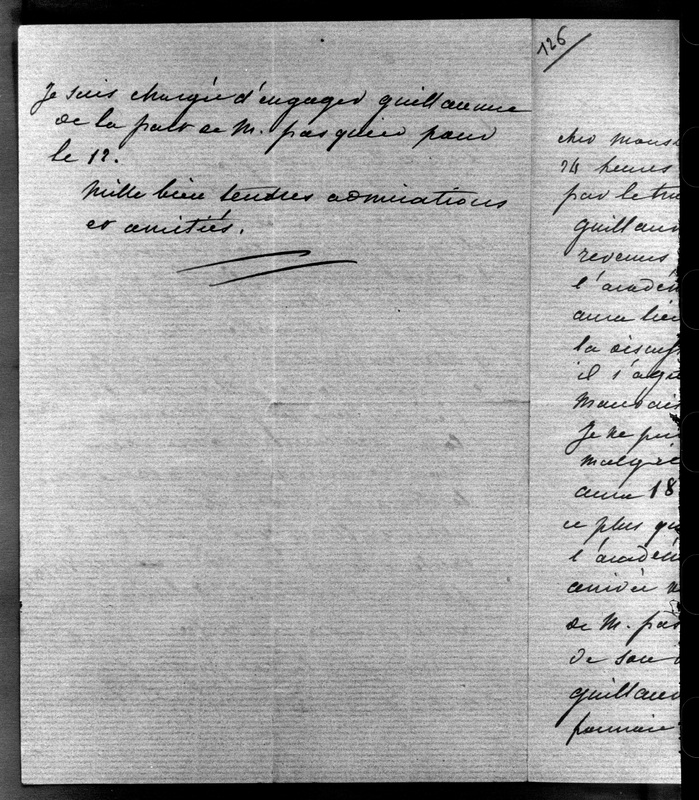 Je suis chargée d'engager guillaume
de la part de M. pasquier pour
le 12.
Mille bien tendres admirations
et amitiés.
126
cher mons
24 heures
par le
guillau
revenus
l'acadé
aura bie
la discus
il s'agi
Mauvais
Je ne pui
malgré
aura 18
plus qu
l'acadé
de M. pas
de son
guillau